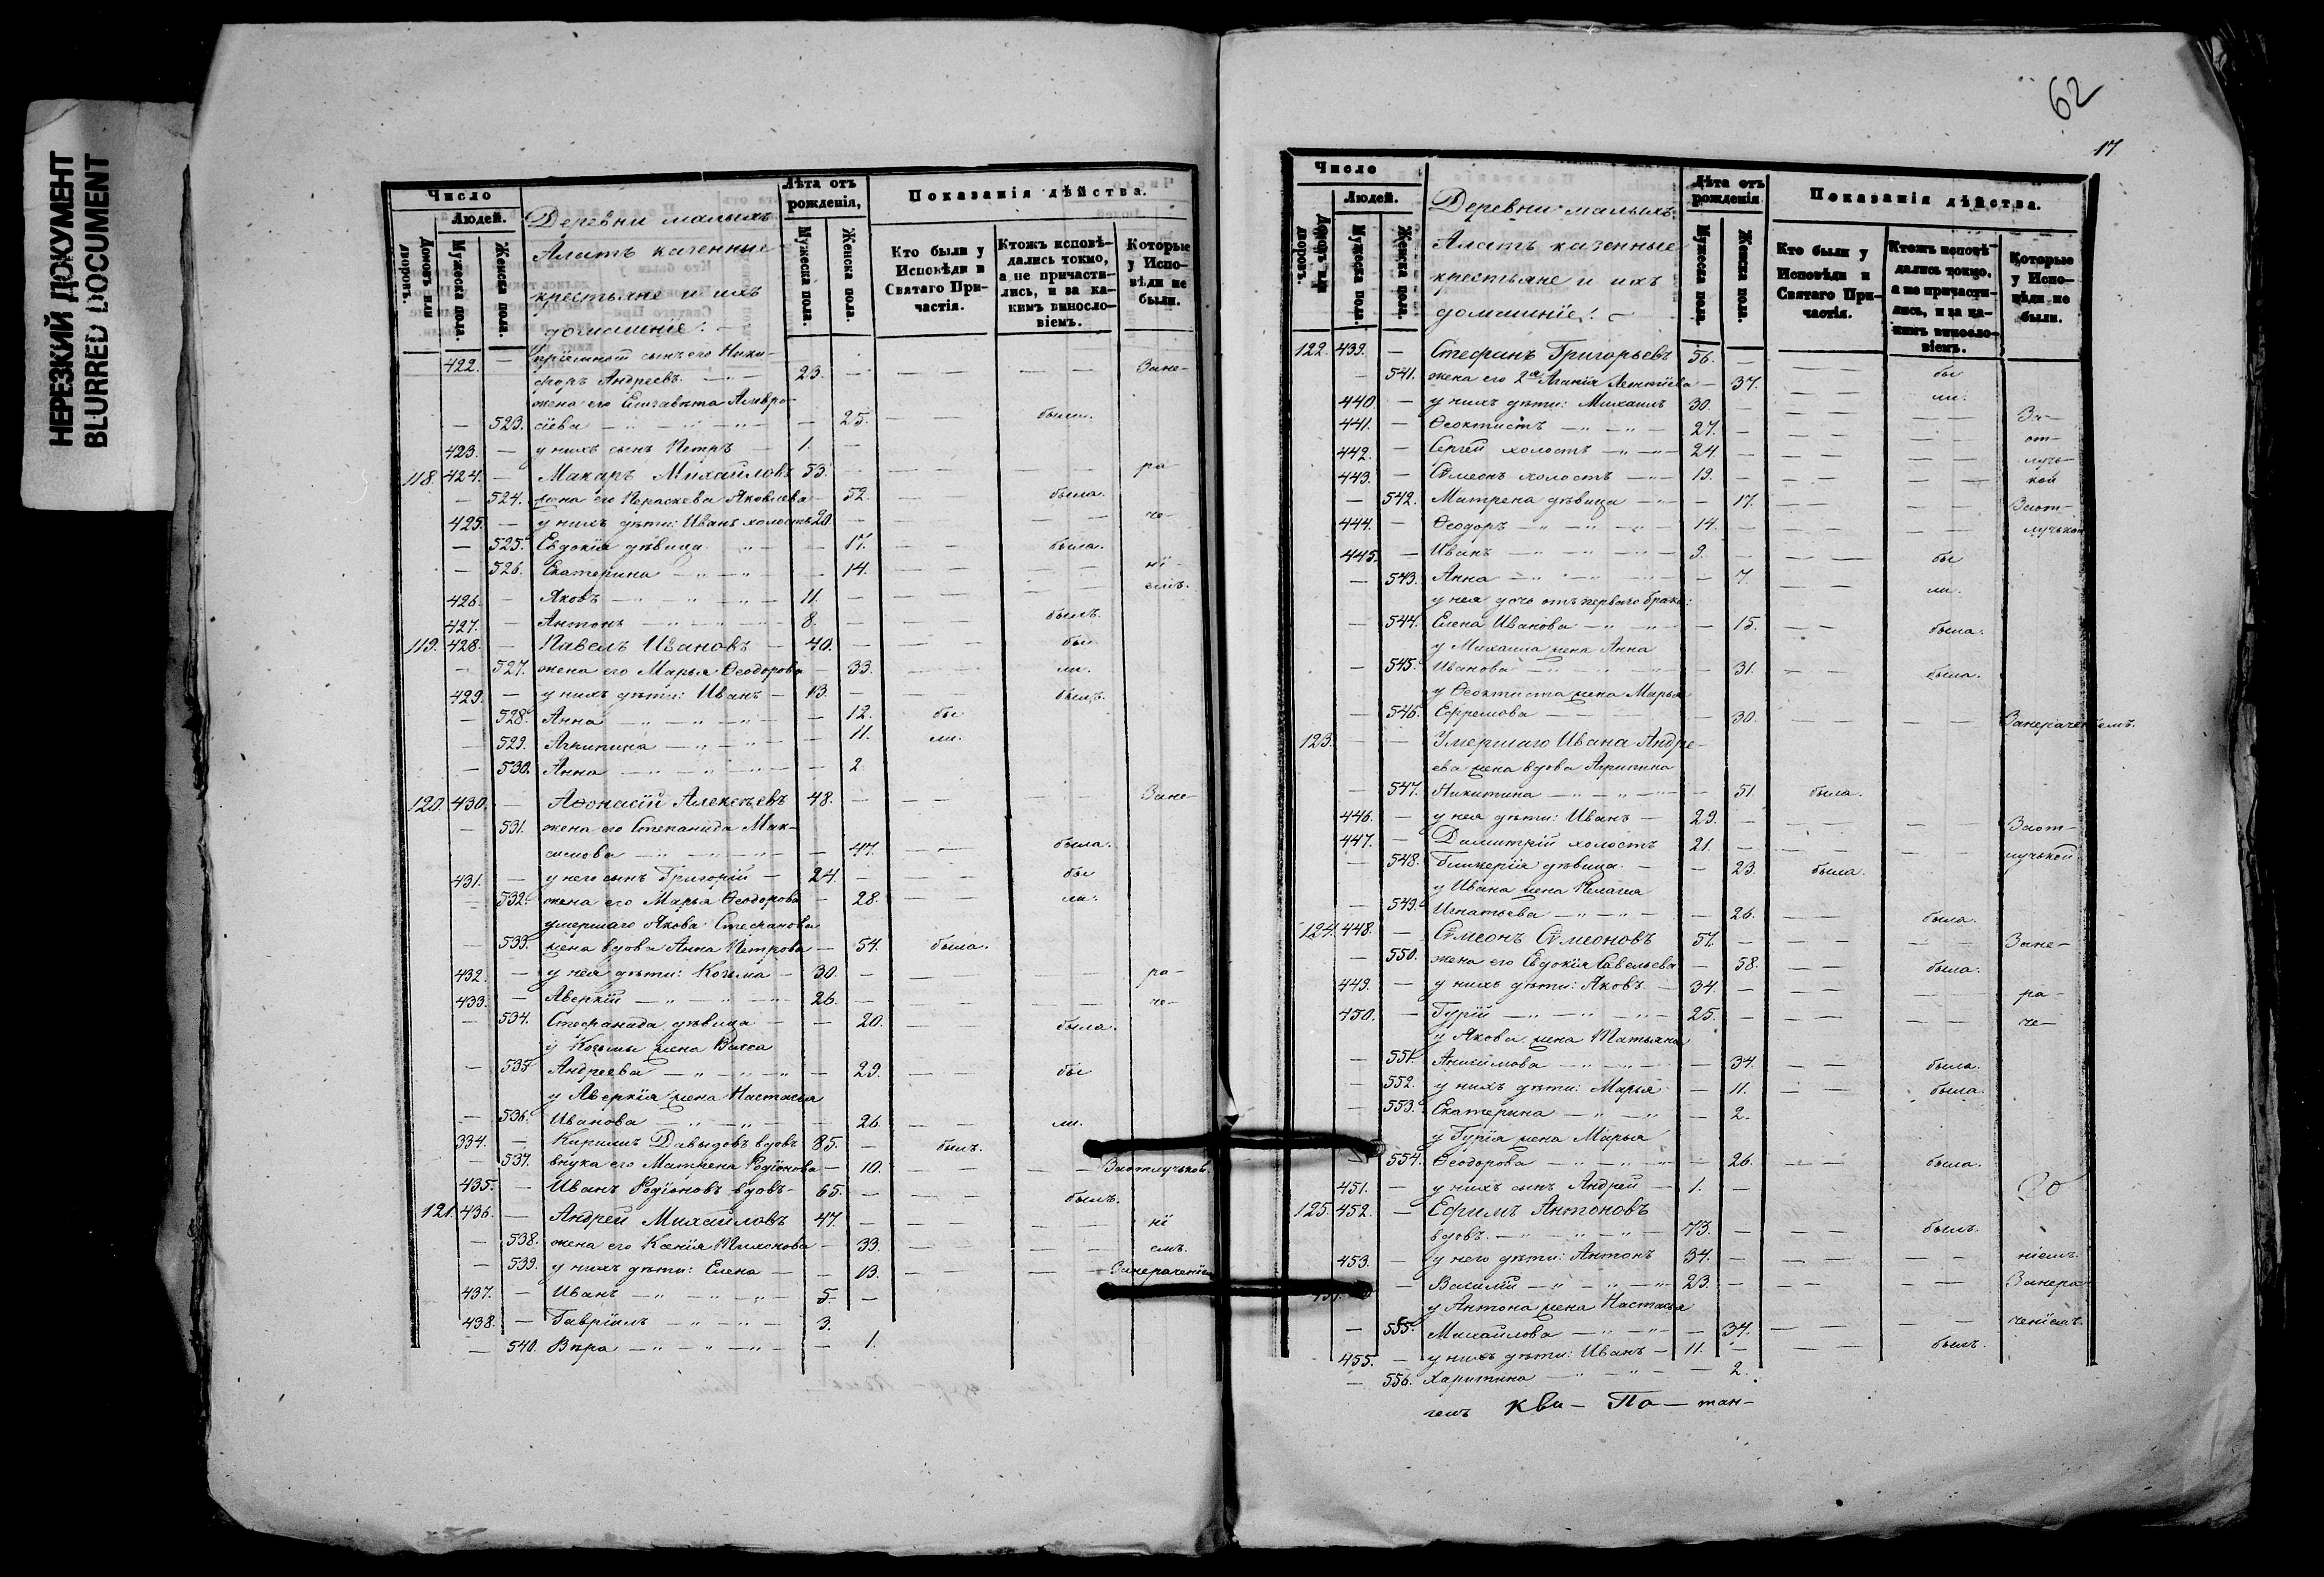 НЕРЕЗКИЙ ДОКУМЕНТ
BLURRED DOCUMENT
Число
Людей.
Домовъ или дворовъ.
Мужеска пола.
Женска пола.
Деревни малыхъ
Алатъ казенные
крестьяне и ихъ
домашніе:
Лѣта отъ рожденія,
Мужеска пола.
Женска пола.
Показанія дѣйства.
Кто были у Исповѣди и Святаго Причастія.
Ктожъ исповѣдались токмо, а не причастились, и за какимъ винословіемъ.
Которые у Исповѣди не были.
422. — пріемной сынъ его Ники-
форъ Андреевъ 23. — Зане-
жена его Елисавета Амвро-
— 523. сіева — 25. были.
423. — у нихъ сынъ Петръ 1. —
118. 424. — Макаръ Михайловъ 53. — ра-
— 524. жена его Параскева Яковлева 52. была.
425. — у нихъ дѣти: Иванъ холостъ 20. — че-
— 525. Евдокія дѣвица — 17. была.
— 526. Екатерина — 14. ні-
426. — Яковъ 11. — емъ.
427. — Антонъ 8. — былъ.
119. 428. — Павелъ Ивановъ — 40. — бы
— 527. жена его Марья Ѳеодорова — 33. ли.
429. — у нихъ дѣти: Иванъ — 13. — былъ.
— 528. Анна — 12. бы
— 529. Агрипина — 11. ли.
— 530. Анна — 2.
120. 430. — Аѳонасій Алексѣевъ 48. — Зане-
— 531. жена его Степанида Мак-
симова — 47. была.
431. — у него сынъ Григорій — 24. — бы
— 532. жена его Марья Ѳеодорова — 28. ли.
умершаго Якова Стефанова
— 533. жена вдова Анна Петрова — 54. была.
432. — у нея дѣти: Козьма — 30. — ра-
433. — Аверкій 26. — че-
— 534. Стефанида дѣвица — 20. была.
у Козьмы жена Васса
— 535. Андреева — 29. бы
у Аверкія жена Настасья
— 536. Иванова — 26. ли.
334. — Кирилъ Давыдовъ вдовъ 85. — былъ.
— 537. внука его Матрена Родіонова — 10. Заотлучкой.
435. — Иванъ Родіоновъ вдовъ — 65. — былъ.
121. 436. — Андрей Михайловъ 47. — ні
— 538. жена его Ксенія Тихонова — 33. емъ.
— 539. у нихъ дѣти: Елена — 13. Занераченіемъ
437. — Иванъ 5. —
438. — Гавріилъ 3.
— 540. Вѣра — 1.
62
17
Число
Людей.
Домовъ или дворовъ.
Мужеска пола.
Женска пола.
Деревни малыхъ
Алатъ казенные
крестьяне и ихъ
домашніе:
Лѣта отъ рожденія
Мужеска пола.
Женска пола.
Показанія дѣйства.
Кто были у Исповѣди и Святаго Причастія.
Ктожъ исповѣдались токмо, а не причастились, и за какимъ винословіемъ.
Которые у Исповѣди не были.
122. 439. — Стефанъ Григорьевъ 56. — бы
— 541. жена его 2я Агапія Леонтіева — 37. ли.
440. — у нихъ дѣти: Михаилъ 30. — За-
441. — Ѳеоктистъ 27. — от-
442. — Сергей холостъ 24. — луч-
443. — Сѵмеонъ холостъ 19. — кой
— 542. Матрена дѣвица — 17. Заот-
444. — Ѳеодоръ 14. — лучькой
445. — Иванъ 9. — бы
— 543. Анна — 7. ли.
у нея дочь отъ перваго брака:
— 544. Елена Иванова — 15. была.
у Михаила жена Анна
— 545. Иванова — 31. была.
у Ѳеоктиста жена Марья
— 546. Ефремова — 30. Занераченіемъ.
123. — Умершаго Ивана Андре-
ева жена вдова Агрипина
— 547. Никитина — 51 была.
446. — у нея дѣти: Иванъ — 29. — Заот-
447. — Димитрій холостъ 21. — лучькой
— 548. Гликерія дѣвица — 23. была.
у Ивана жена Пелагея
— 549. Игнатьева — 26. была.
124. 448. — Сѵмеонъ Сѵмеоновъ 57. — Зане-
— 550. жена его Евдокія Савельева — 58. была.
449. — у нихъ дѣти: Яковъ — 34. — ра-
450. — Гурій 25. — че-
у Якова жена Татьяна
— 551. Анисимова — 34. была.
— 552. у нихъ дѣти: Марья — 11. была.
— 553. Екатерина — 2.
у Гурія жена Марья
— 554. Ѳеодорова — 26. была.
451. — у нихъ сынъ Андрей — 1. —
125. 452. — Ефимъ Антоновъ
вдовъ. 73. — былъ.
453. — у него дѣти: Антонъ 34. — ніемъ.
— Василій 23. — Занера-
у Антона жена Настасья
— 555. Михайлова — 34. ченіемъ.
455. — у нихъ дѣти: Иванъ — 11. — былъ.
— 556. Харитина — 2.
гелъ Кви- Па- тан-